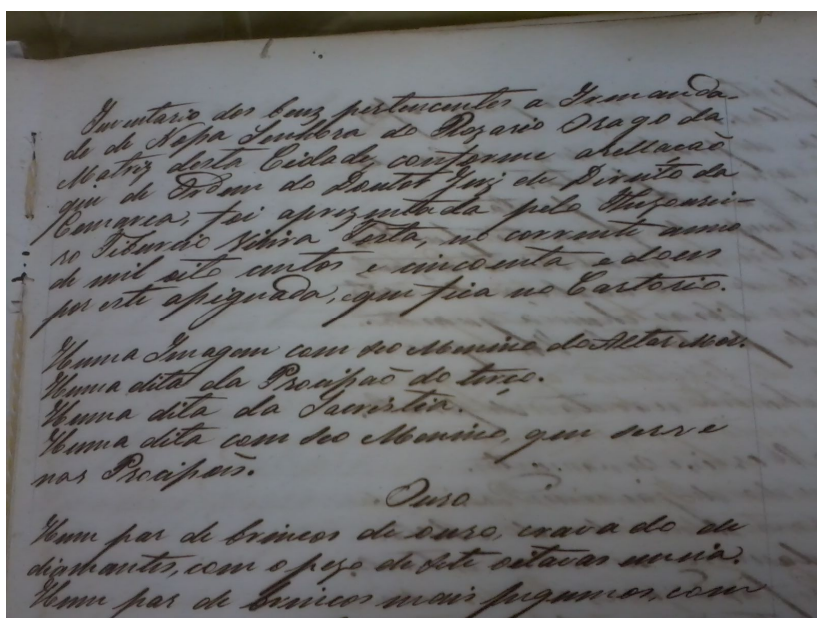 Inventario dos bens pertencentes a Irmanda-
de de Nossa Senhora do Rozario Orago da
Matriz desta Cidade, conforme arellacaõ
que de Ordem do Doutor Juiz de Direito da
Comarca, foi aprezentada pelo Thezourei-
ro Tiburcio Vieira Torta, no corrente anno
de mil oito centos e cincoenta e dous
por este assignada, e que fica no Cartorio.
Huma Imagem com seo Menino do Altar Mor.
Huma dita da Procissaõ do terço.
Huma dita da Sacristia.
Huma dita com seo Menino, que serve
nas Procissoẽs.
Ouro
Hum par de brincos de ouro, cravado de
diamantes, com o pezo de sete oitavas e meia.
Hum par de brincos mais piquenos, com